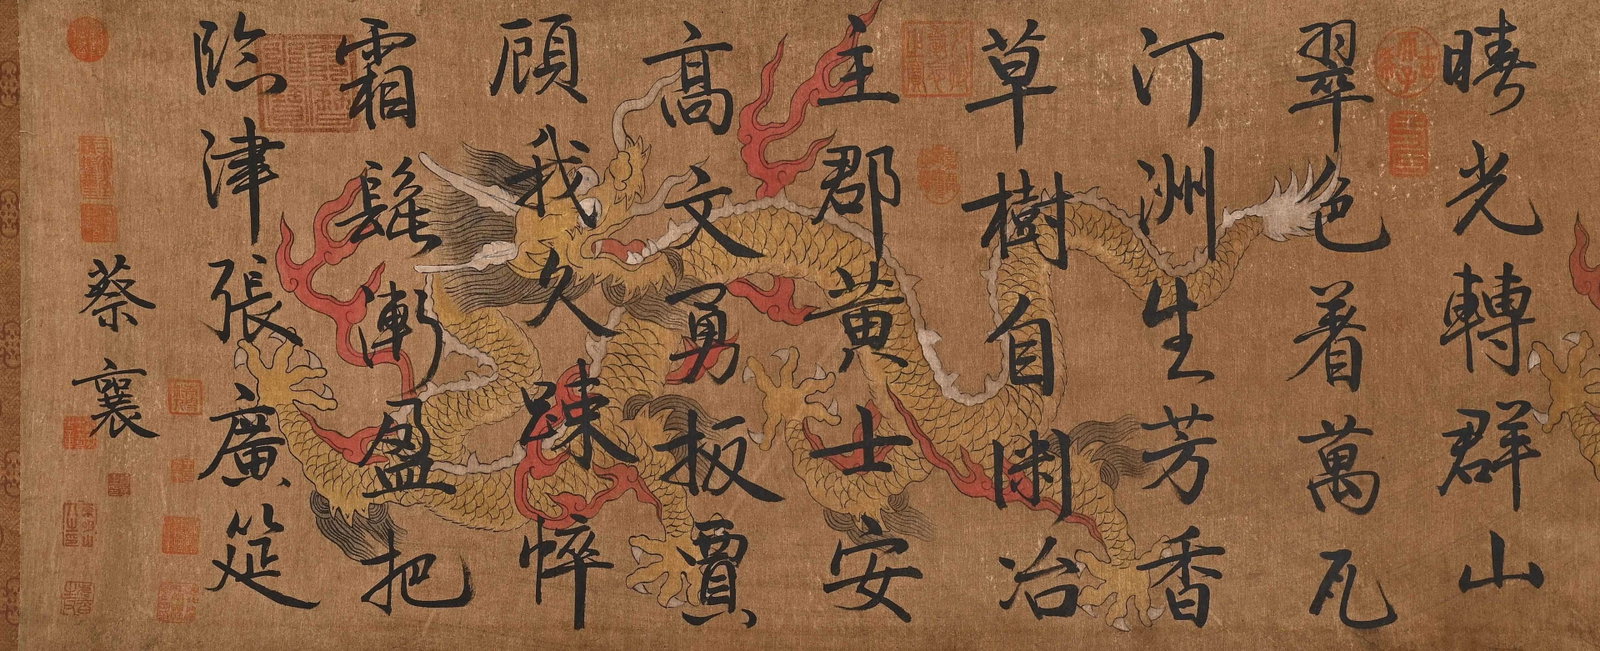 晴光轉群山
翠色着萬瓦
汀洲生芳香
草樹自閑冶
主郡黄士安
高文勇扳賈
顧我久踈悴
霜髭漸盈把
臨津張廣筵
蔡襄